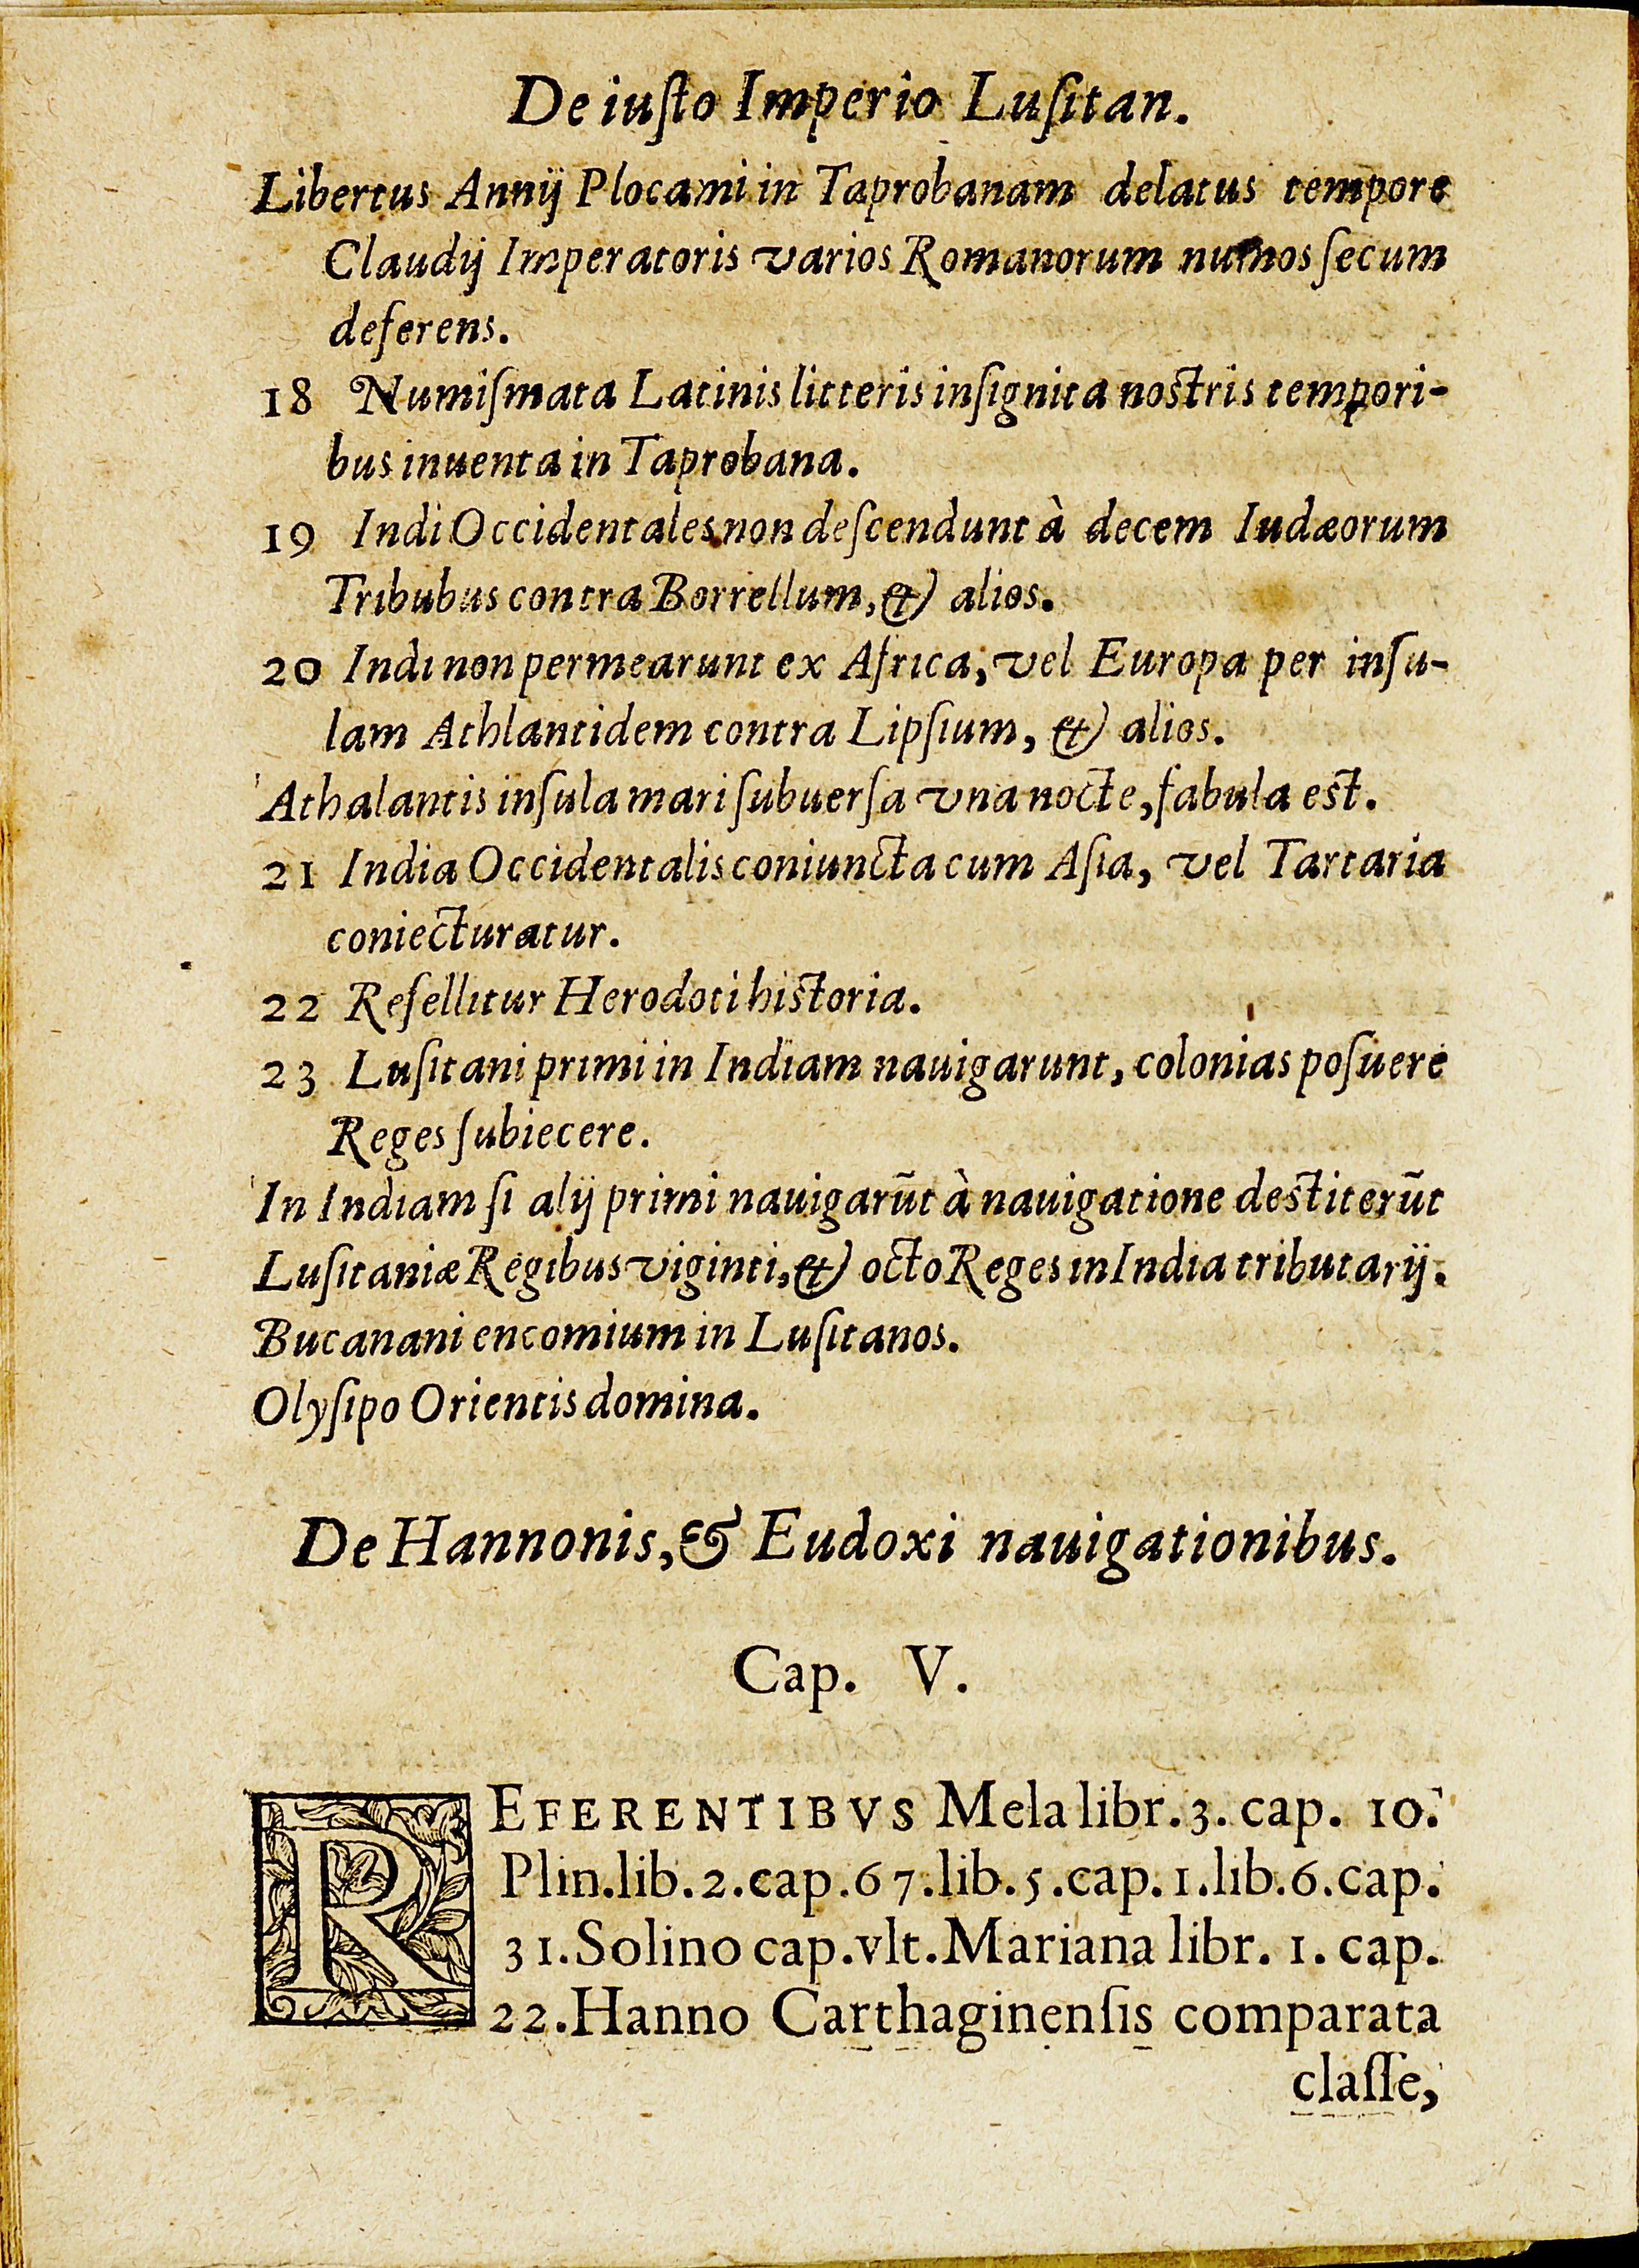 De iuſto Imperio Luſitan.
Libertus Annij Plocami in Taprobanam delatus tempore
Claudij Imperatoris varios Romanorum numos ſecum
deferens.
18 Numiſmata Latinis litteris inſignita nostris tempori-
bus inuenta in Taprobana.
19 Indi Occidentales non deſcendunt à decem Iudæorum
Tribubus contra Borrellum, & alios.
20 Indi non permearunt ex Africa, vel Europa per inſu-
lam Athlantidem contra Lipſium, & alios.
Athalantis inſula mari ſubuerſa vna nocte, fabula est.
21 India Occidentalis coniuncta cum Aſia, vel Tartaria
coniecturatur.
22 Refellitur Herodoti historia.
23 Luſitani primi in Indiam nauigarunt, colonias poſuere
Reges ſubiecere.
In Indiam ſi alij primi nauigarũt à nauigatione destiterũt
Luſitaniæ Regibus viginti, & octo Reges in India tributarij.
Bucanani encomium in Luſitanos.
Olyſipo Orientis domina.
De Hannonis, & Eudoxi nauigationibus.
Cap. V.
REFERENTIBVS Mela libr. 3. cap. 10.
Plin. lib. 2. cap. 67. lib. 5. cap. 1. lib. 6. cap.
31. Solino cap. vlt. Mariana libr. 1. cap.
22. Hanno Carthaginenſis comparata
claſſe,